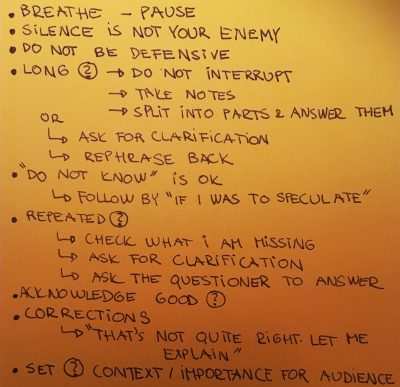 • BREATHE – PAUSE
• SILENCE IS NOT YOUR ENEMY
• DO NOT BE DEFENSIVE
• LONG ? → DO NOT INTERRUPT
→ TAKE NOTES
→ SPLIT INTO PARTS & ANSWER THEM
OR
↳ ASK FOR CLARIFICATION
↳ REPHRASE BACK
• "DO NOT KNOW" IS OK
↳ FOLLOW BY "IF I WAS TO SPECULATE"
• REPEATED ?
↳ CHECK WHAT i AM MISSING
↳ ASK FOR CLARIFICATION
↳ ASK THE QUESTIONER TO ANSWER
• ACKNOWLEDGE GOOD ?
• CORRECTIONS
↳ "THAT'S NOT QUITE RIGHT. LET ME
EXPLAIN"
• SET ? CONTEXT / IMPORTANCE FOR AUDIENCE